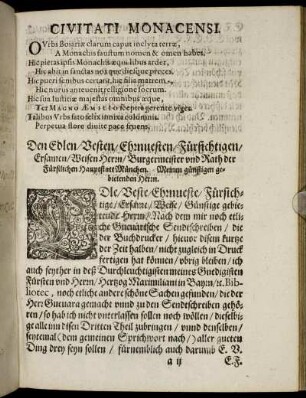 CIVITATI MONACENSI.
O Vrbs Boiariæ clarum caput inclyta terræ,
A Monachis faustum nomen & omen habes.
Hic pietas ipsis Monachis æqualibus ardet,
Hic abit in sanctas nox preces.
Hic pueri senibus certant, hic filia matrem,
Hic nurus anteuenit religione socrum.
Hic sua Iustitiæ majestas omnibus æque,
Ter MAGNO sospite perenne viget.
Talibus Vrbs fato felix innixa columnis,
Perpetua flore diuite pace fruens.
Den Edlen, Vesten, Ehrnuesten, Fürsichtigen,
Ersamen, Weisen Herrn, Burgermeister vnd Rath der
Fürstlichen Hauptstatt München, Meinen günstigen ge-
bietenden Herrn.
EDle, Veste, Ehrnueste, Fürsich-
tige, Ersame, Weise, Günstige gebie-
tende Herrn, Nach dem mir noch etli-
che Gneuarische Sendtschreiben, die
der Buchdrucker, hieuor disem kurtze
der Zeit halben, nicht zugleich im Druck
fertigen hat können, obrig bleiben, ich
auch seyther in deß Durchleuchtigisten meines Gnedigisten
Fürsten vnd Herrn, Hertzog Maximilian in Bayrn, ꝛc. Bib-
liotec, noch etlich andere schöne Sachen gefunden, die der
Herr Gneuara gemacht vnnd zu den Sendtschreiben gehö-
ren, so hab ich nicht vnterlassen sollen noch wöllen, dieselbi-
ge alle inn disen Dritten Theil zubringen, vnnd denselben,
seytemal (dem gemeinen Sprichwort nach,) aller gueten
Ding drey seyn sollen, fürnemblich auch darumb E. V.
a ij E.F.